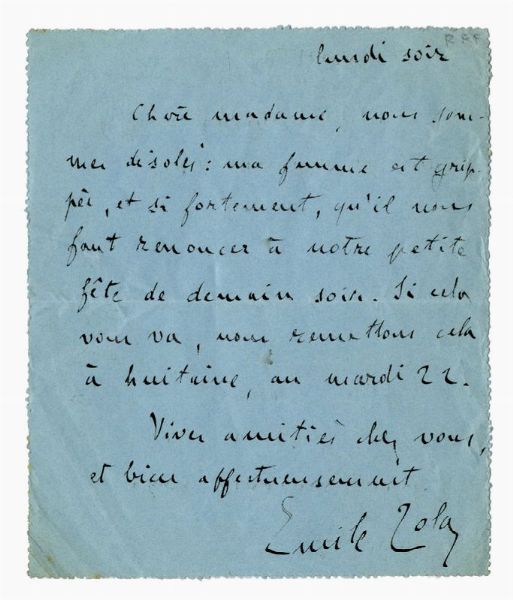 lundi soir
Chère madame, nous som-
mes désolés : ma femme est grip-
pée, et si fortement, qu'il nous
faut renoncer à notre petite
fête de demain soir. Si cela
vous va, nous remettons cela
à huitaine, au mardi 22.
Vives amitiés chez vous,
et bien affectueusement
Emile Zola